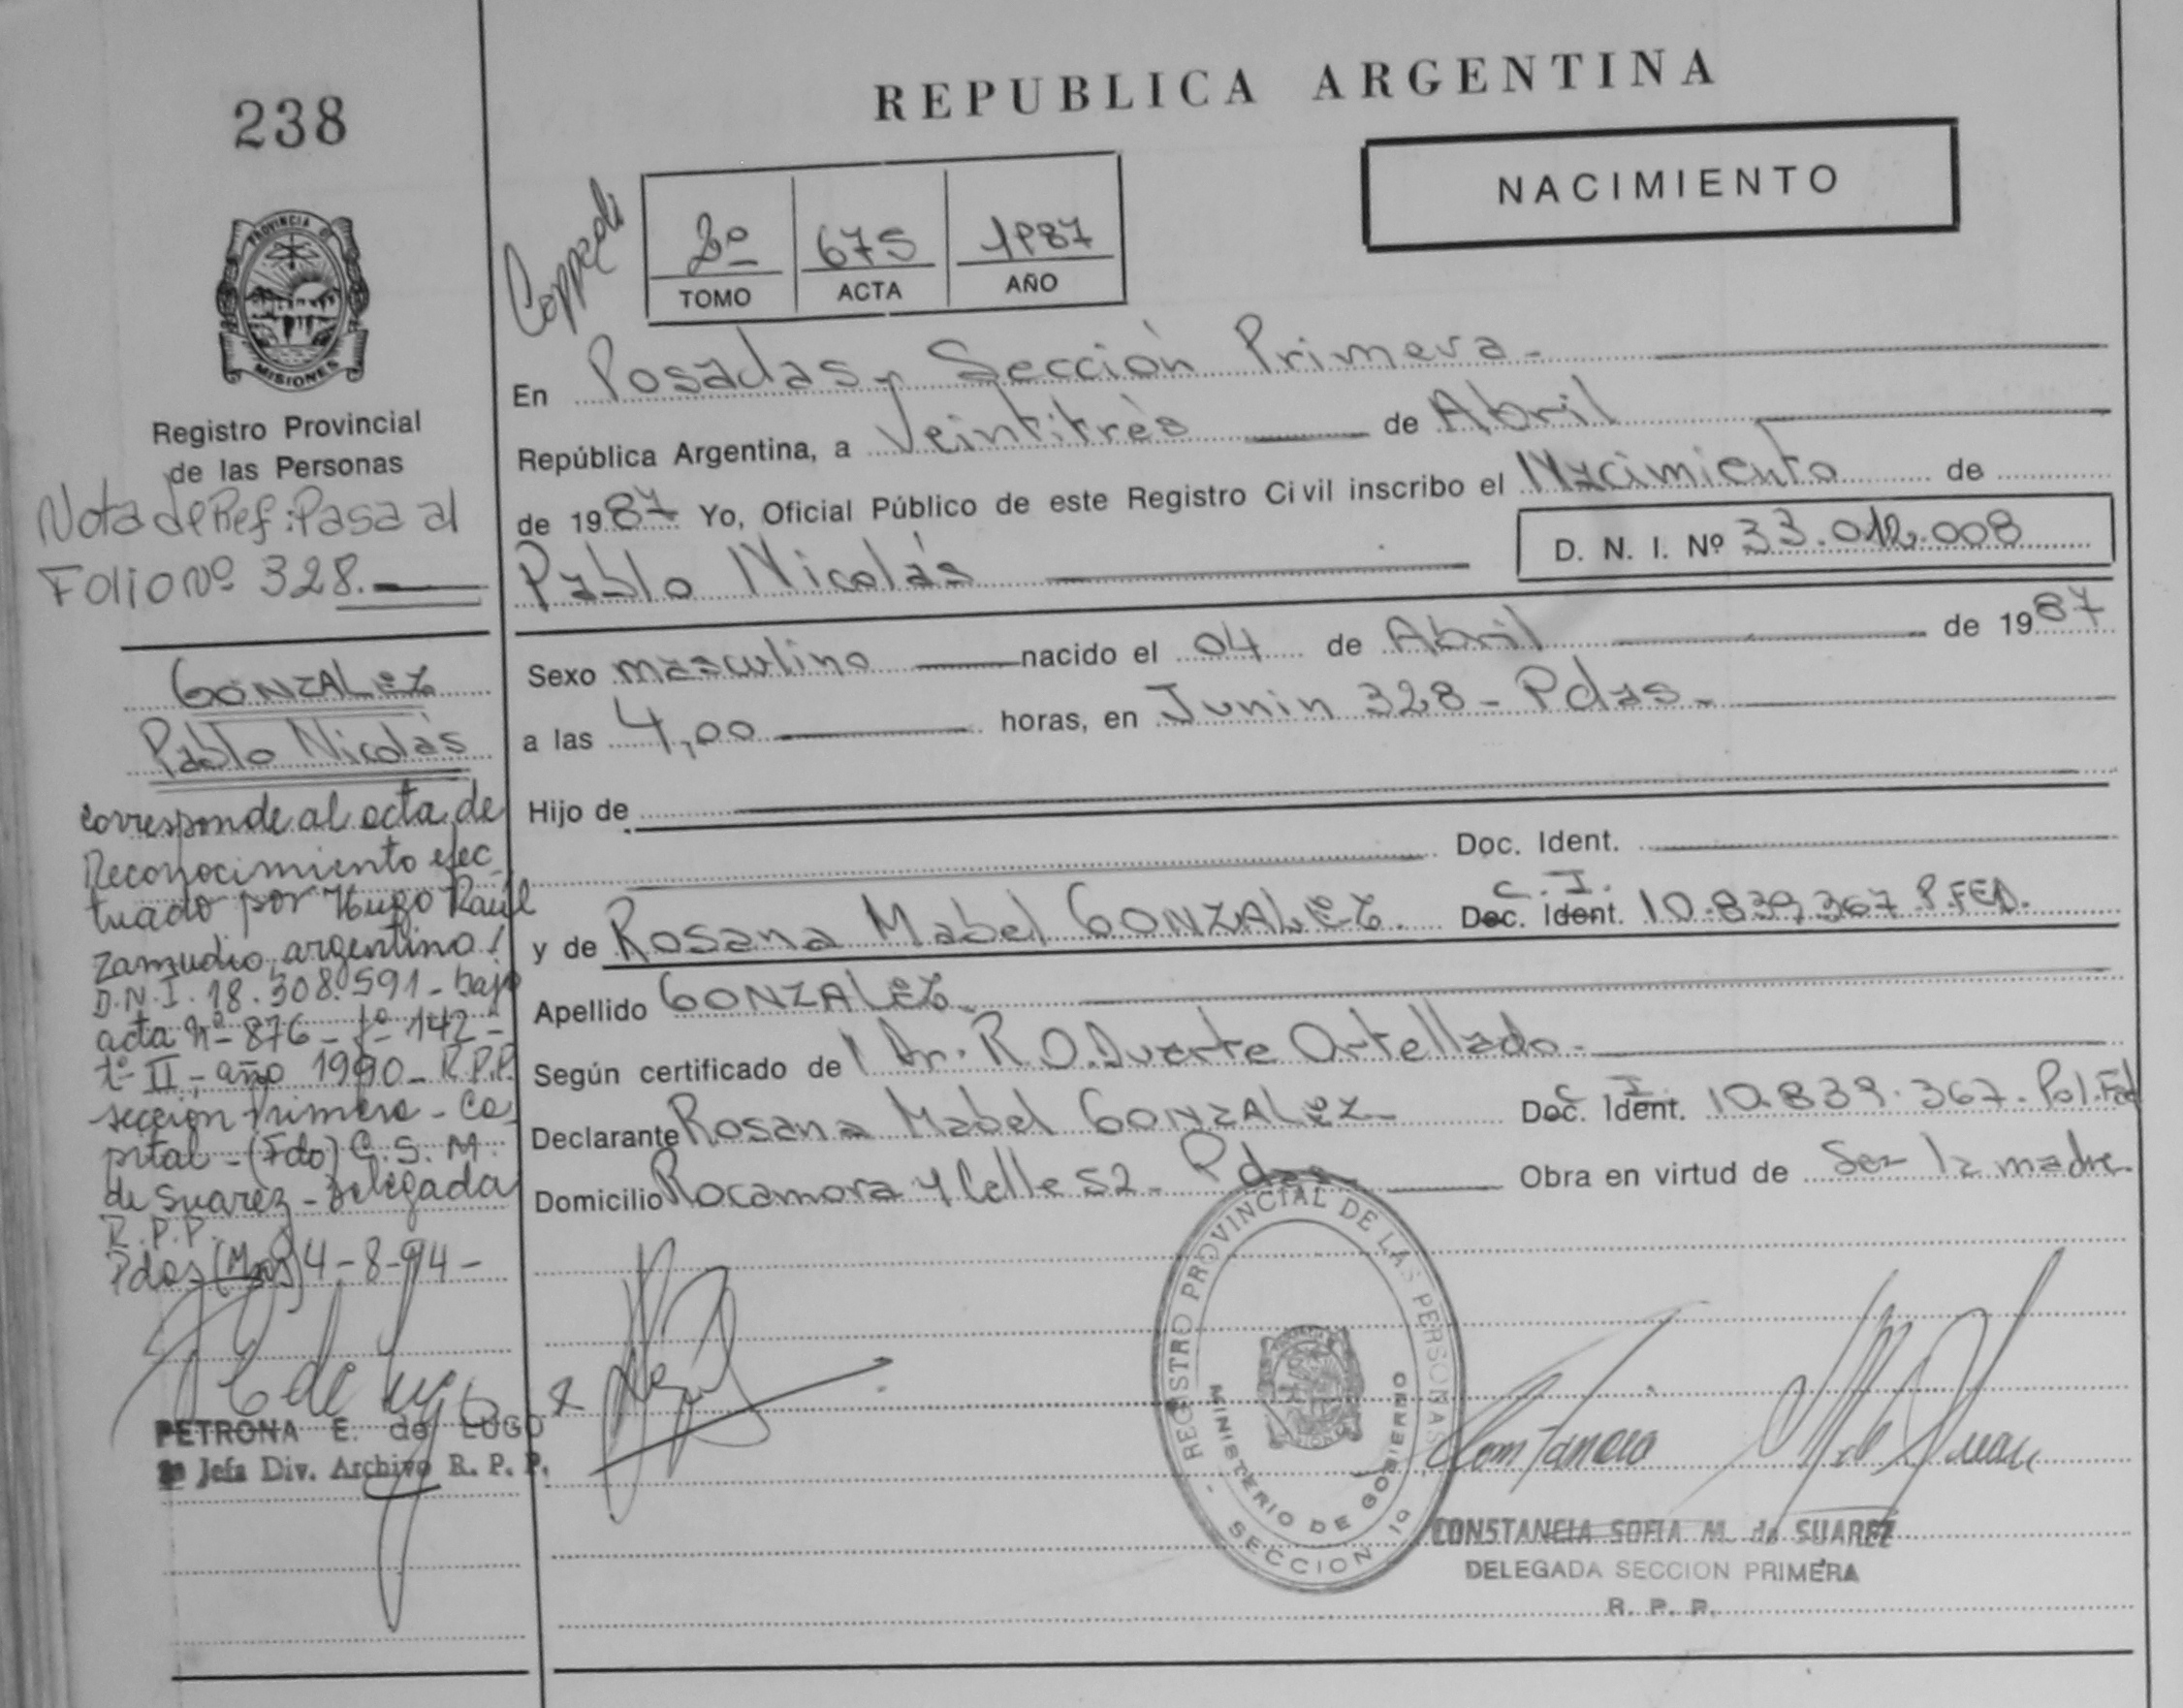 238
REPUBLICA ARGENTINA
NACIMIENTO
2º 675 1987
TOMO ACTA AÑO
PROVINCIA DE
MISIONES
Registro Provincial
de las Personas
Nota de Ref: Pasa al
Folio Nº 328.
GONZALEZ
Pablo Nicolás
corresponde al acta de
Reconocimiento efec_
tuado por Hugo Raúl
Zamudio, argentino
D.N.I. 18.308.591 - bajo
acta nº 876 - fº 142 -
tº II - año 1990 - R.P.P.
sección Primera - Ca
pital - (Fdo) C. S. M.
de Suarez - Delegada
R.P.P.
Pdas (Mns) 4-8-94 -
PETRONA E. de LUGO
Jefa Div. Archivo R. P. P.
En Posadas, Sección Primera -
República Argentina, a Veintitrés de Abril
de 1987 Yo, Oficial Público de este Registro Civil inscribo el Nacimiento de
Pablo Nicolás
D. N. I. Nº 33.012.008
Sexo masculino nacido el 04 de Abril de 1987
a las 4,00 horas, en Junin 328 - Pdas -
Hijo de
Doc. Ident.
y de Rosana Mabel GONZALEZ. C.I. Doc. Ident. 10.839.367 P.FED.
Apellido GONZALEZ
Según certificado de Dr. R.O. Duarte Ortellado -
Declarante Rosana Mabel GONZALEZ - C I. Doc. Ident. 10.839.367 - Pol. Fed
Domicilio Rocamora y Calle 52 - Pdas Obra en virtud de Ser la madre
REGISTRO PROVINCIAL DE LAS PERSONAS
MINISTERIO DE GOBIERNO
SECCION 1º
CONSTANCIA SOFIA M. de SUAREZ
DELEGADA SECCION PRIMERA
R. P. P.